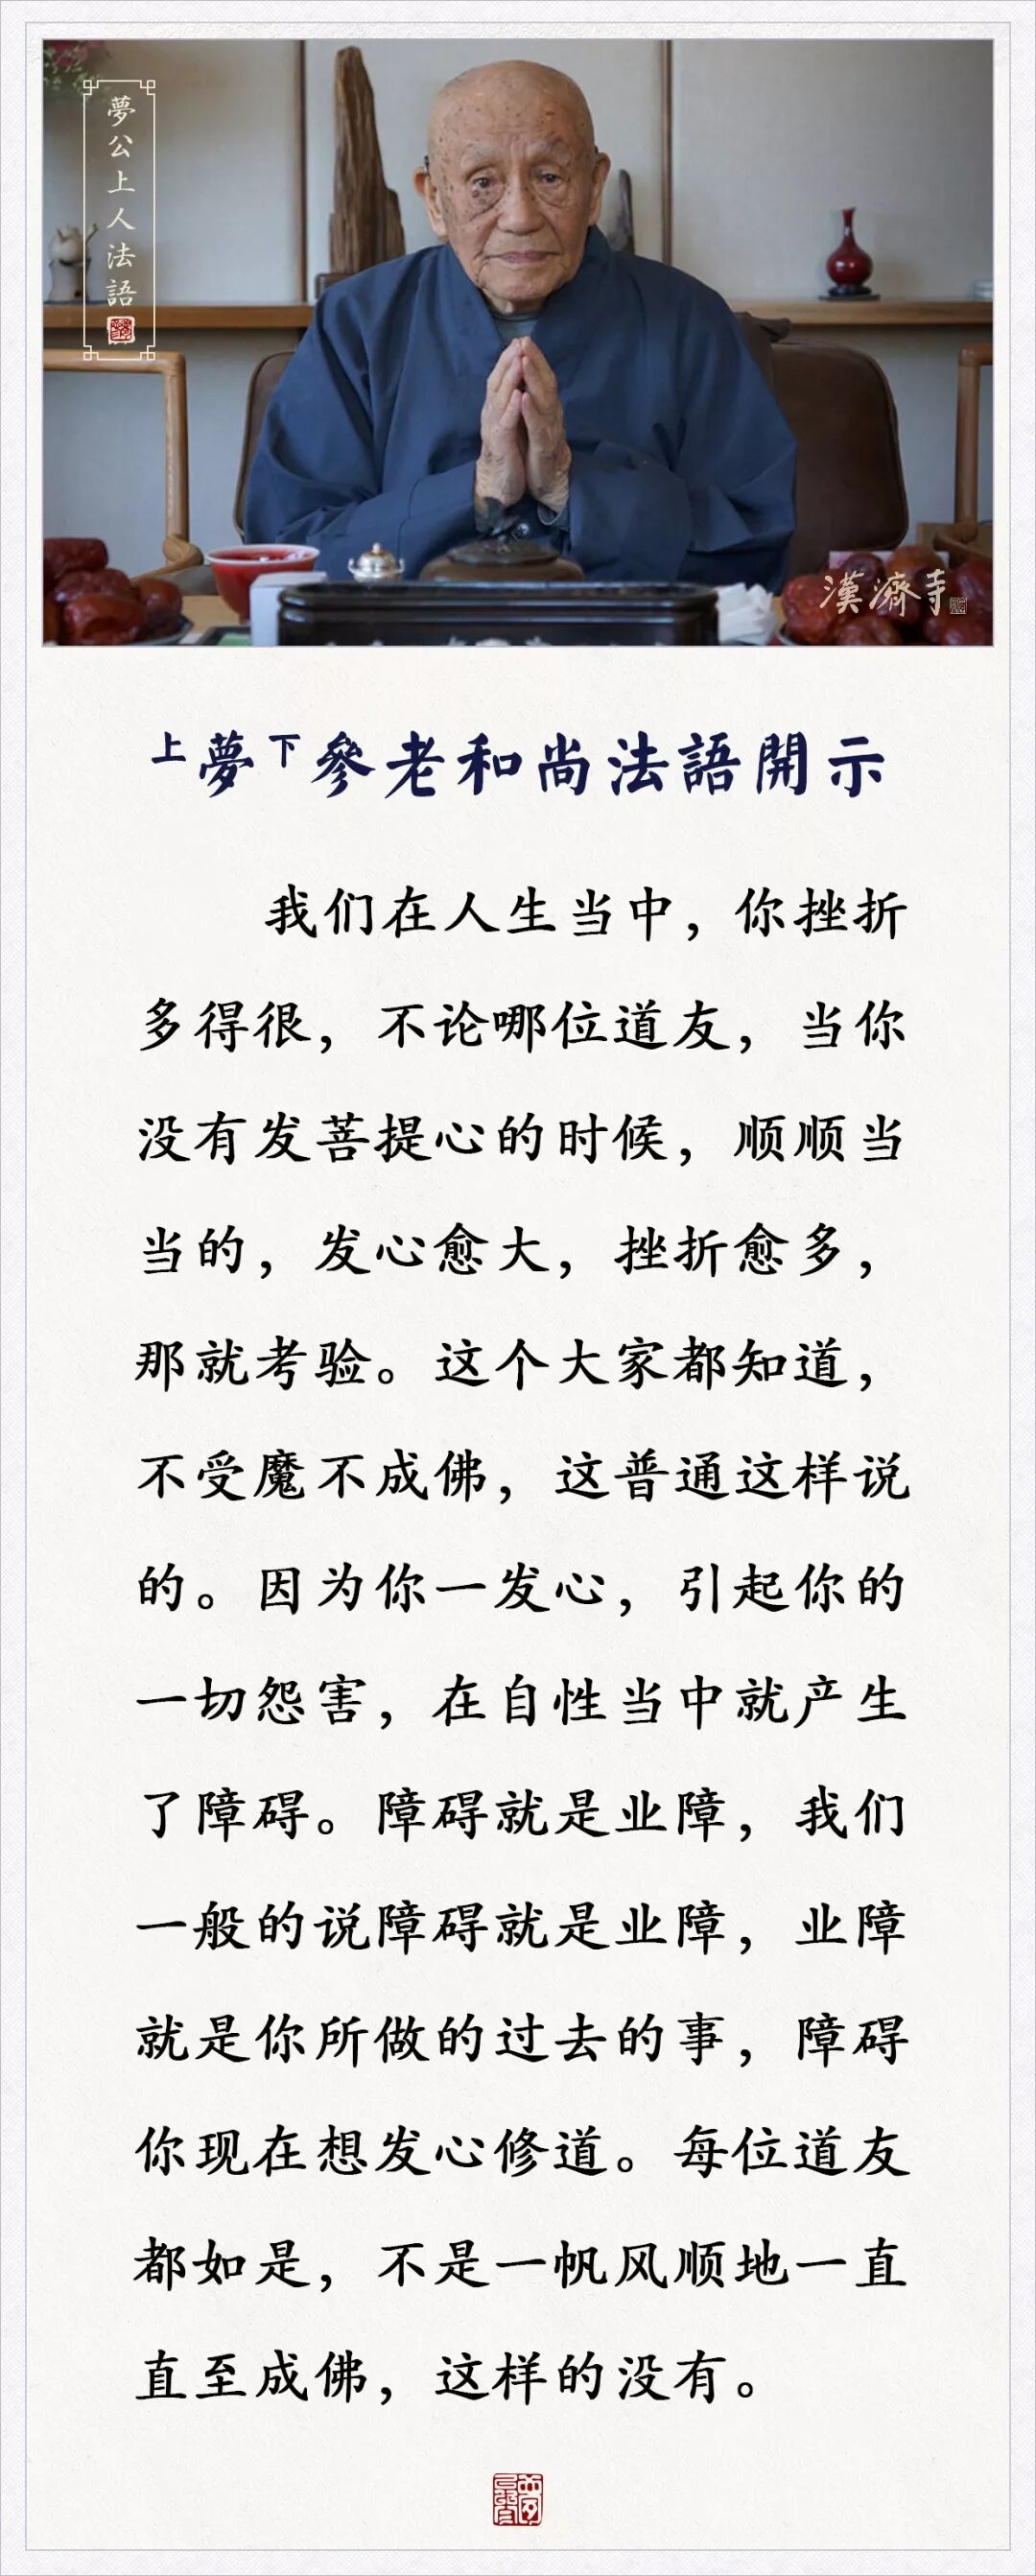 夢公上人法語
漢濟寺
上夢下參老和尚法語開示
我们在人生当中，你挫折
多得很，不论哪位道友，当你
没有发菩提心的时候，顺顺当
当的，发心愈大，挫折愈多，
那就考验。这个大家都知道，
不受魔不成佛，这普通这样说
的。因为你一发心，引起你的
一切怨害，在自性当中就产生
了障碍。障碍就是业障，我们
一般的说障碍就是业障，业障
就是你所做的过去的事，障碍
你现在想发心修道。每位道友
都如是，不是一帆风顺地一直
直至成佛，这样的没有。